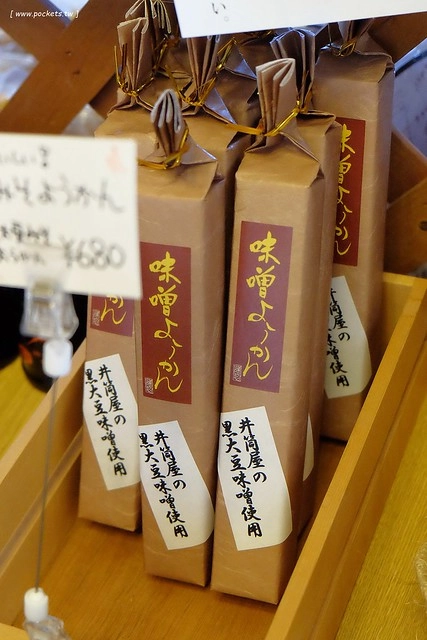 [ www.pockets.tw ]
い。
みそようかん
¥680
味噌ようかん
井筒屋の
黒大豆味噌使用
味噌ようかん
井筒屋の
黒大豆味噌使用
味噌ようかん
井筒屋の
黒大豆味噌使用
味噌ようかん
井筒屋の
味噌使用